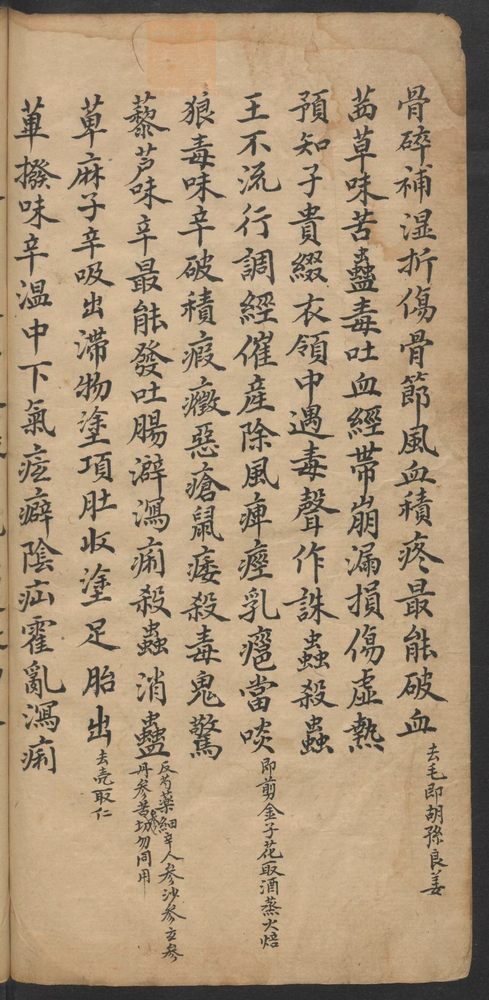 骨碎補湿折傷骨節風血積疼最能破血 去毛即胡孫良姜
茜草味苦蠱毒吐血經帶崩漏損傷虛熱
預知子貴綴衣領中遇毒聲作誅蟲殺蟲
王不流行調經催産除風痺痙乳癰當啖 即剪金子花取酒蒸火焙
狼毒味辛破積瘕癥惡瘡鼠瘘殺毒鬼驚
藜芦味辛最能發吐腸澼瀉痢殺蟲消蠱 反芍藥細辛人參沙參玄參丹參苦參切勿同用
萆麻子辛吸出滞物塗項肚收塗足胎出 去壳取仁
蓽撥味辛温中下氣痃癖陰疝霍亂瀉痢